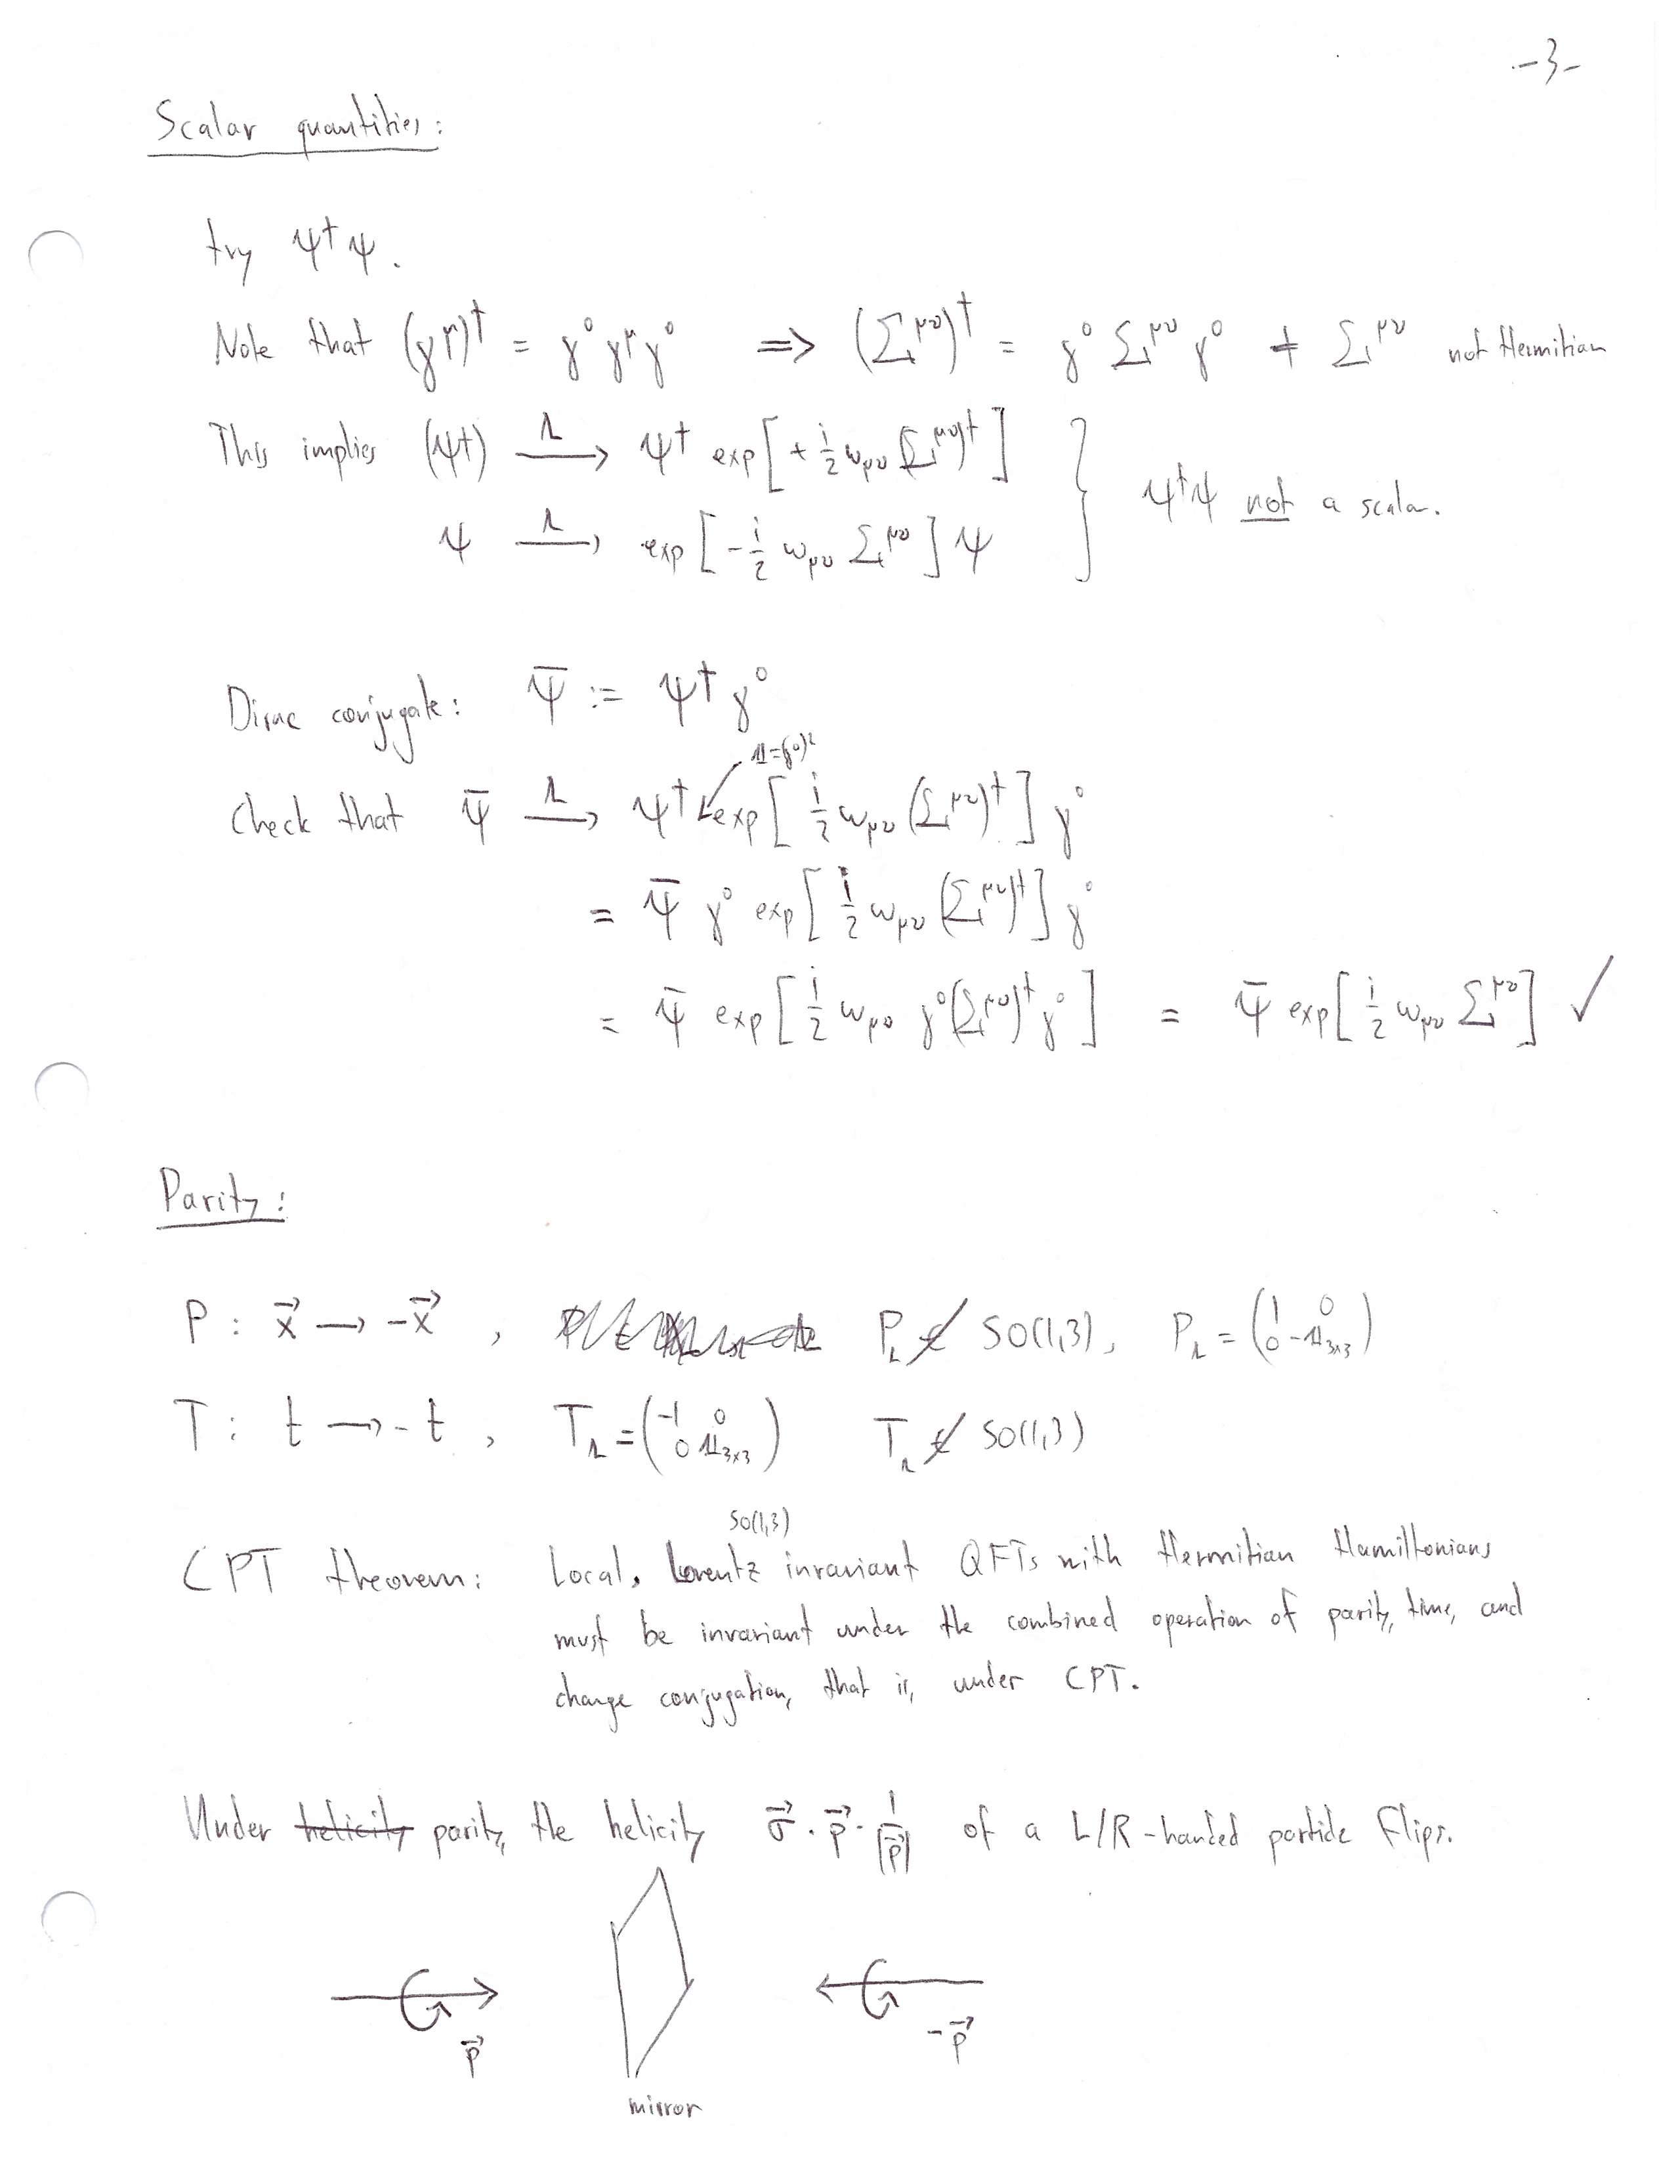 -3-
Scalar quantities:
try ψ†ψ.
Note that (γ^μ)† = γ⁰γ^μγ⁰ ⟹ (Σ^μν)† = γ⁰ Σ^μν γ⁰ ≠ Σ^μν not Hermitian
This implies (ψ†) —Λ→ ψ† exp[+ i/2 ω_μν (Σ^μν)†]
ψ —Λ→ exp[- i/2 ω_μν Σ^μν] ψ
ψ†ψ not a scalar.
Dirac conjugate: ψ̄ := ψ†γ⁰
𝟙=(γ⁰)²
Check that ψ̄ —Λ→ ψ† exp[i/2 ω_μν (Σ^μν)†] γ⁰
= ψ̄ γ⁰ exp[i/2 ω_μν (Σ^μν)†] γ⁰
= ψ̄ exp[i/2 ω_μν γ⁰(Σ^μν)†γ⁰] = ψ̄ exp[i/2 ω_μν Σ^μν] ✓
Parity:
P : x⃗ → -x⃗ , P_Λ ∉ SO(1,3), P_Λ = (1 0 0 -𝟙_3x3)
T : t → - t , T_Λ = (-1 0 0 𝟙_3x3) T_Λ ∉ SO(1,3)
SO(1,3)
CPT theorem: Local, Lorentz invariant QFTs with Hermitian Hamiltonians
must be invariant under the combined operation of parity, time, and
charge conjugation, that is, under CPT.
Under helicity parity, the helicity σ⃗ · p⃗ · 1/|p⃗| of a L/R-handed particle flips.
p⃗
-p⃗
mirror